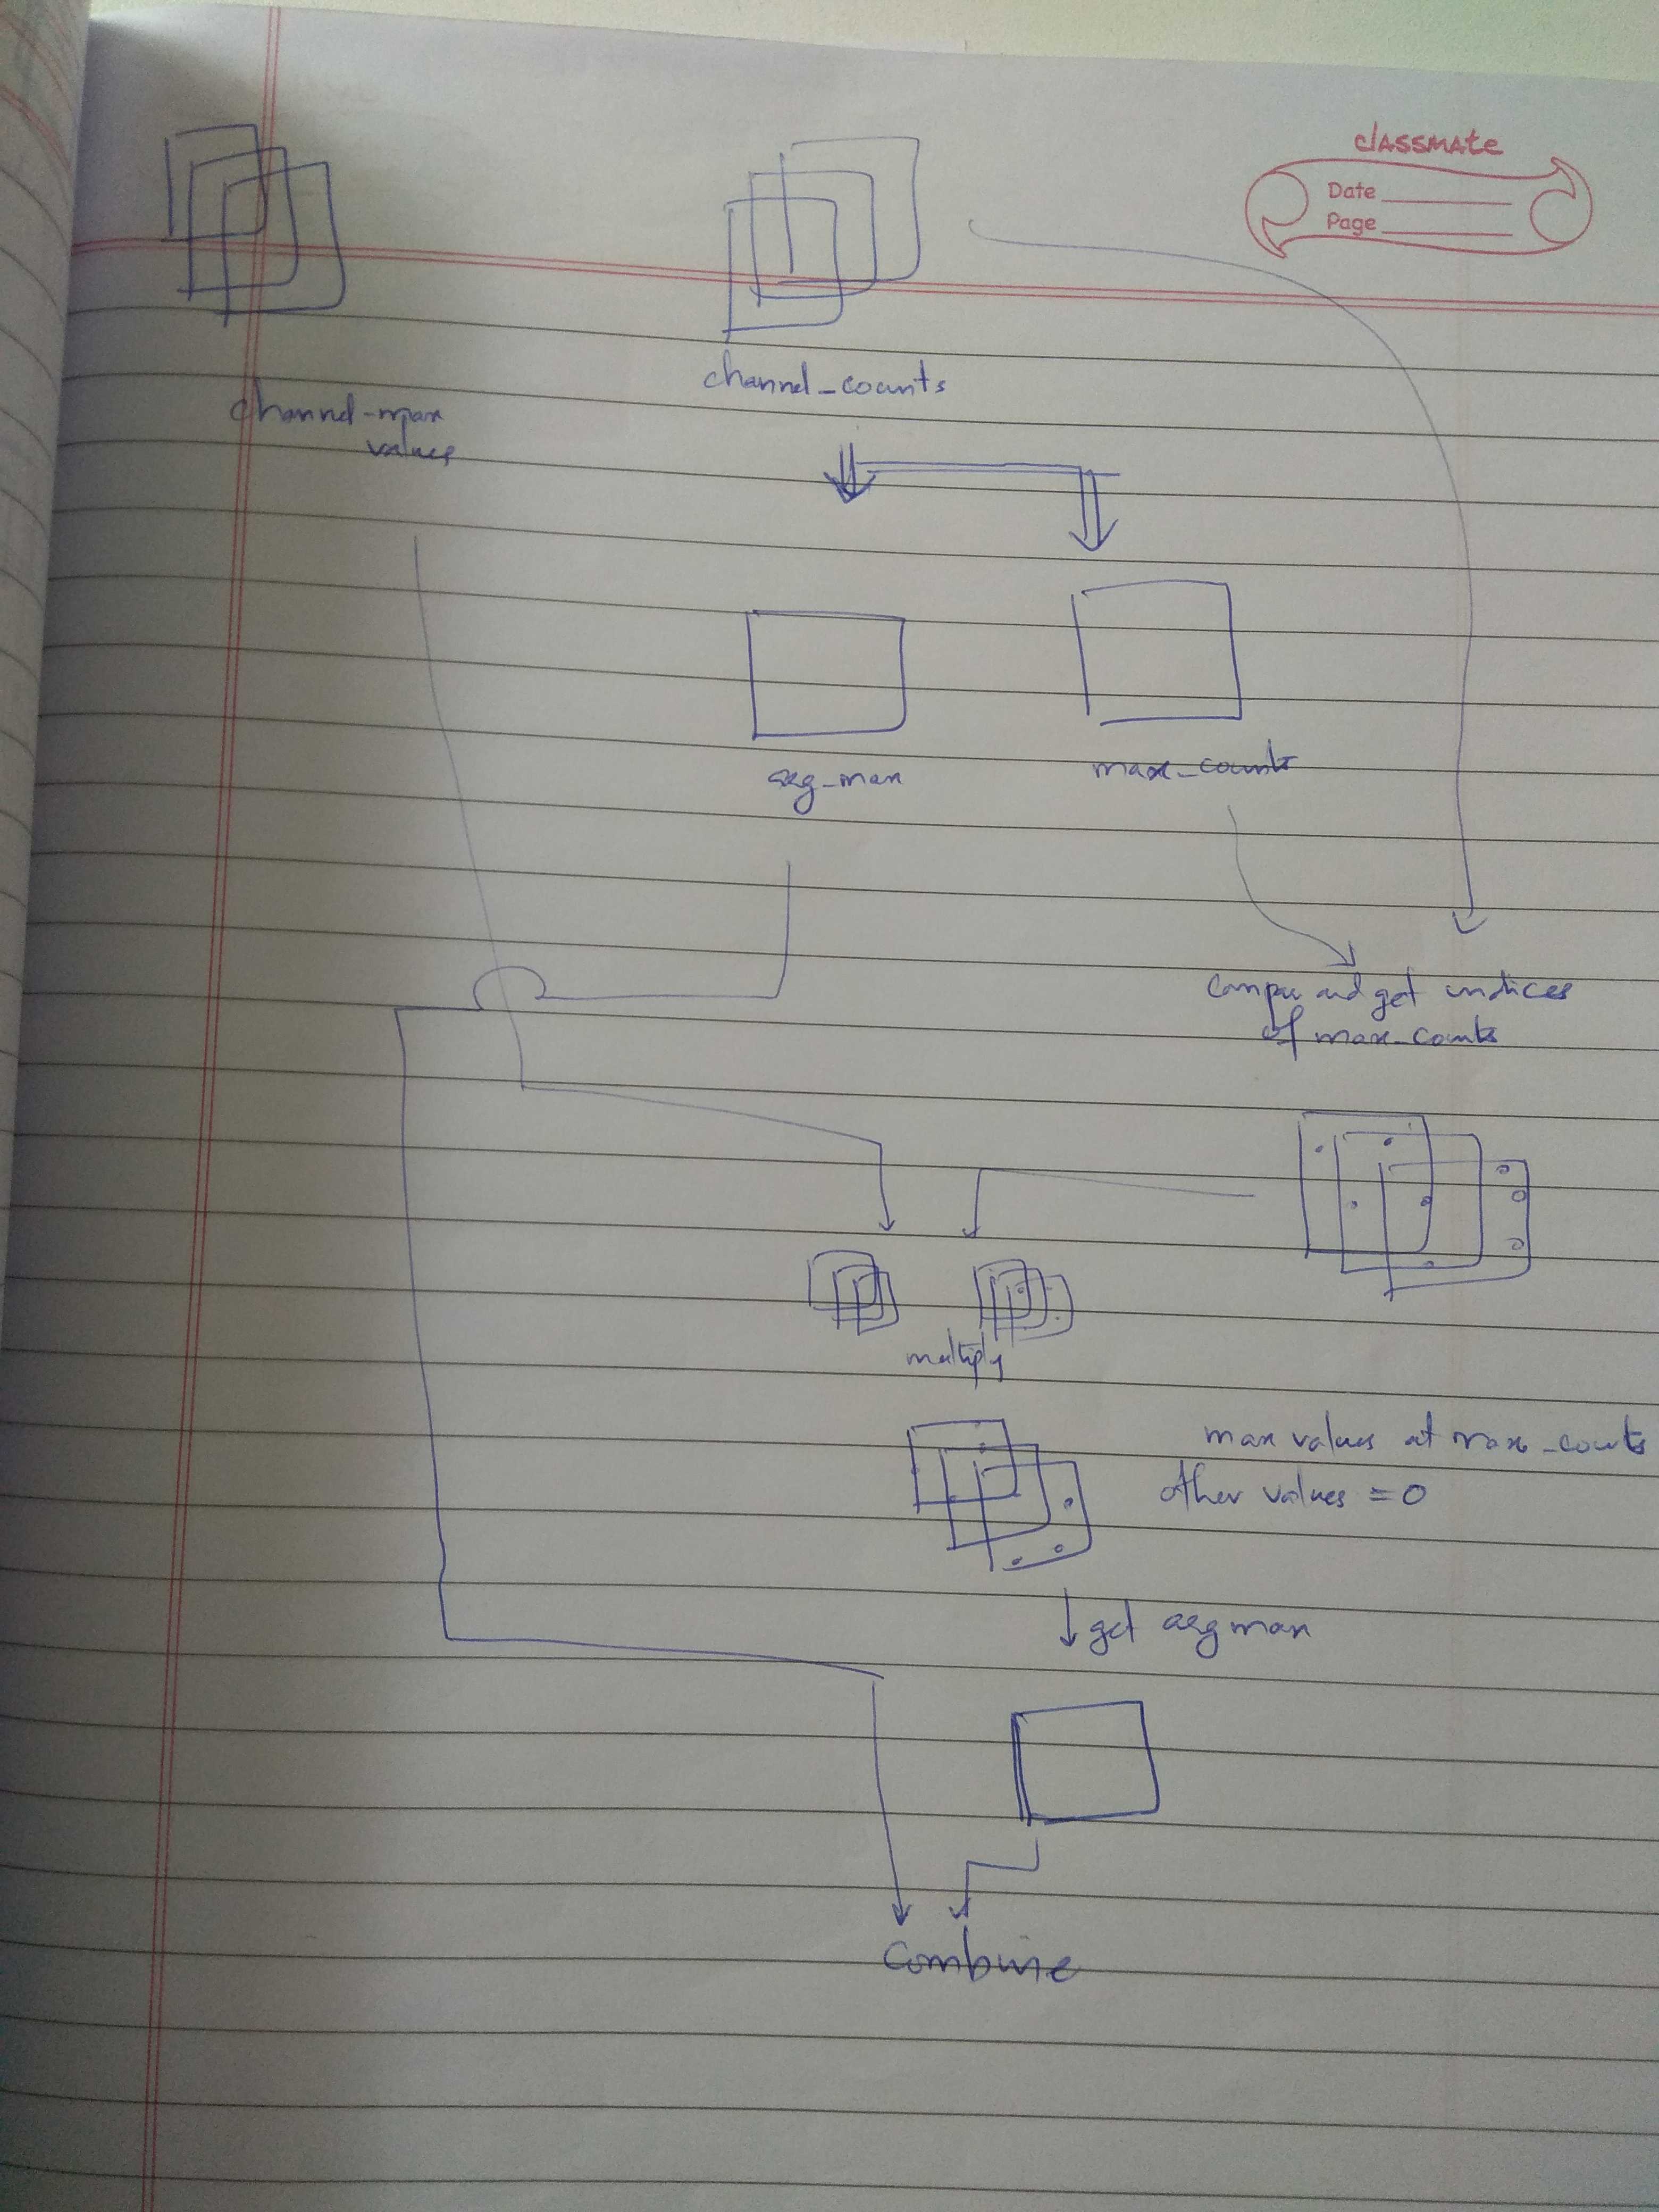 classmate
Date
Page
channel_counts
channel-max
values
arg_max
max_counts
compare and get indices
of max_counts
multiply
max values at max_counts
other values = 0
get argmax
Combine